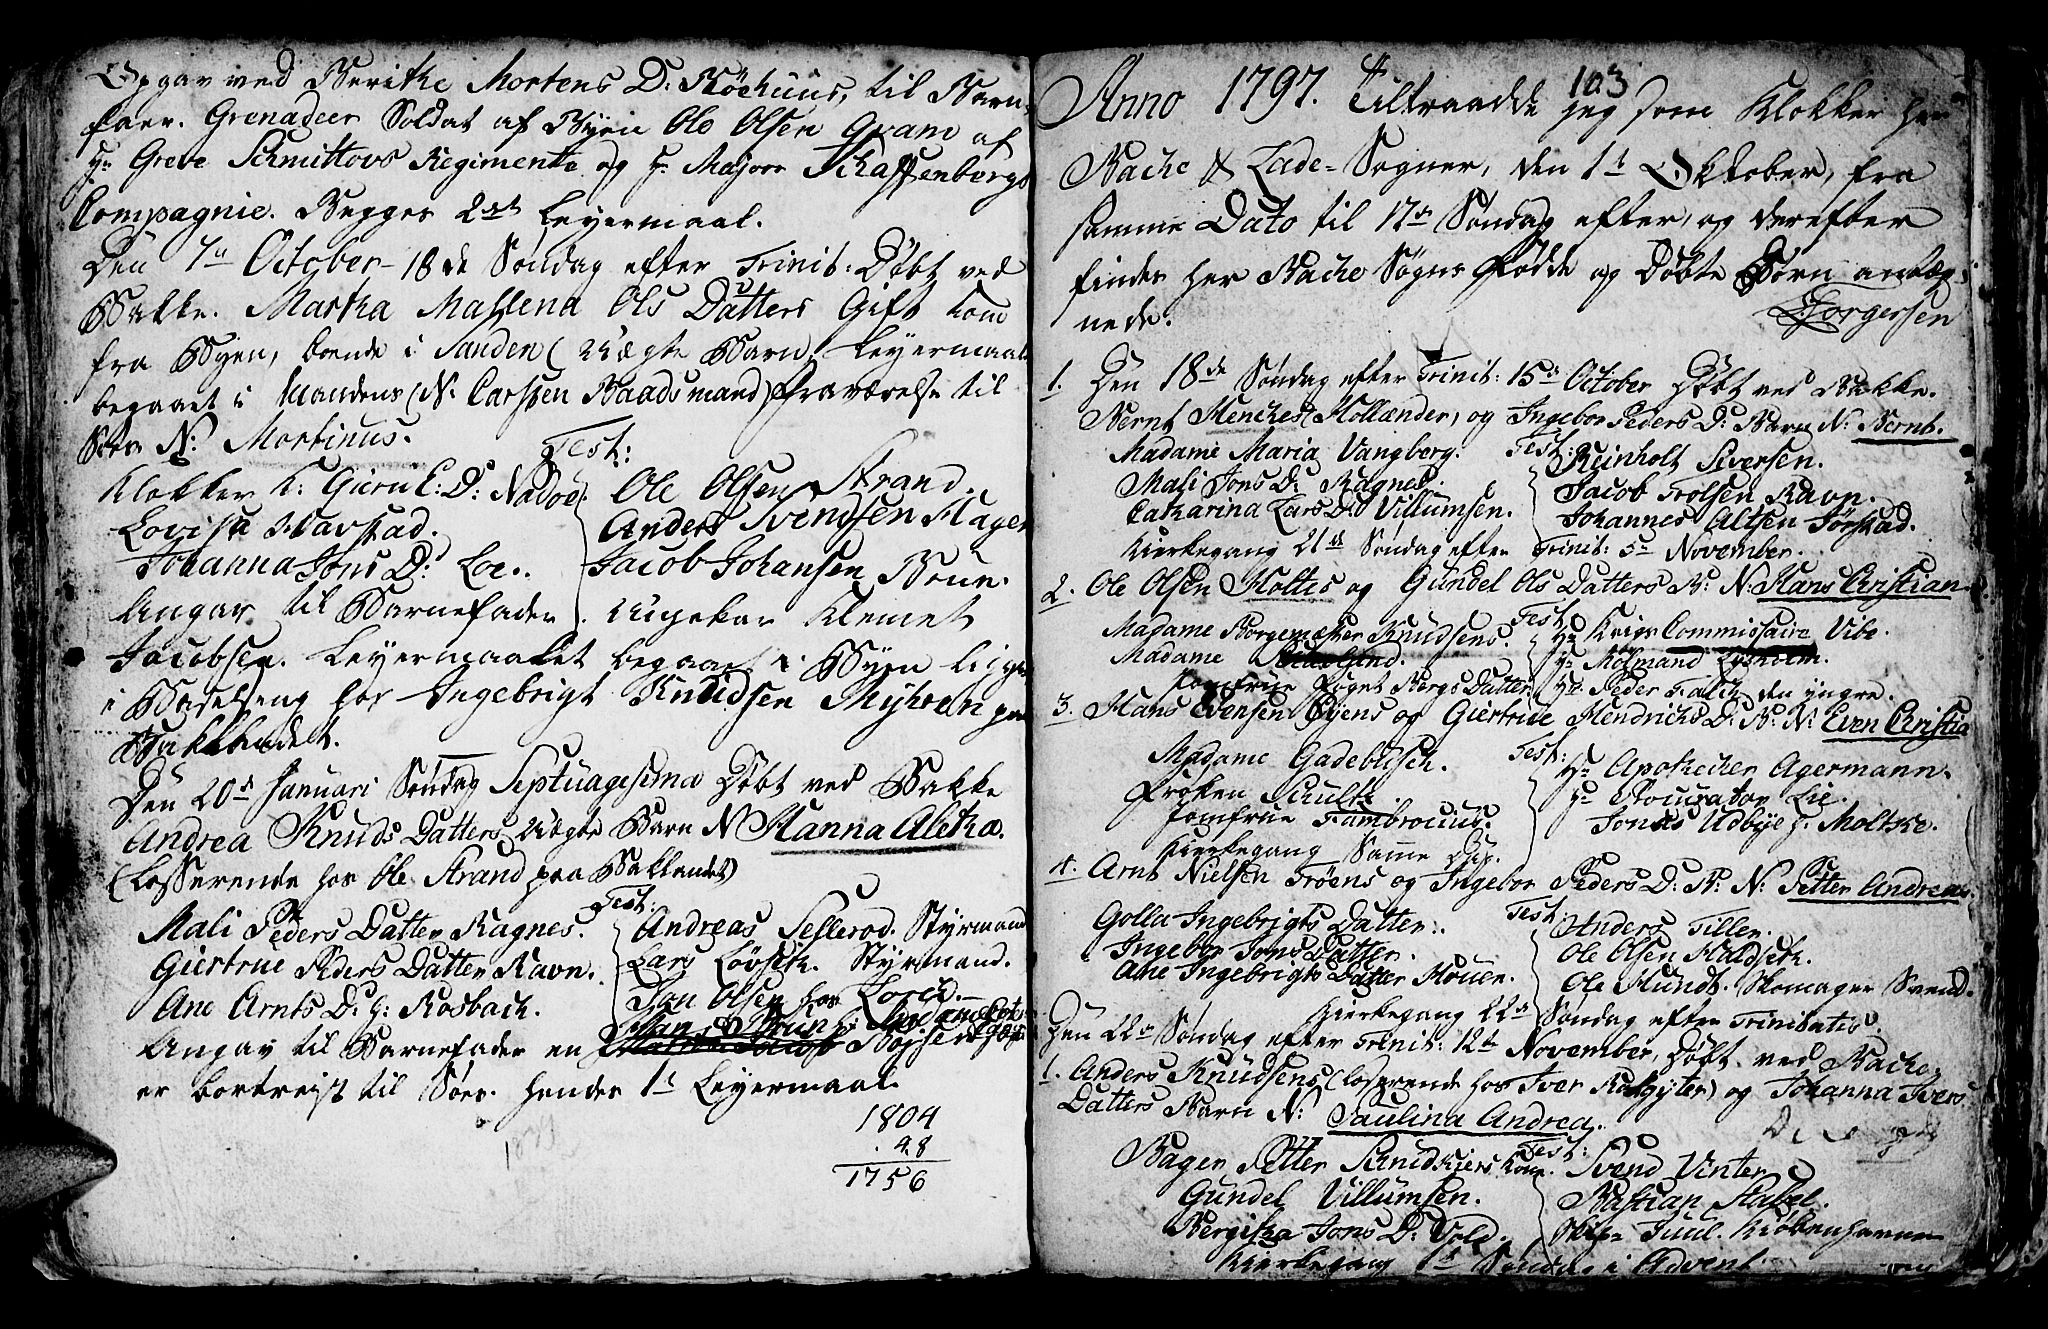 Opgav ved Berithe Mortens D: Röehuus, til Barn-
faer. Grenadeer Soldat af Byen Ole Olsen Qvam af
Hr Greve Schmittovs Regimente og Hr Major Schaffenbergs
Compagnie. Begges 2det Leyermaal.
Den 7de October 18de Søndag efter Trinit: Døbt ved
Bakke. Martha Mallena Ols Datters Gift Kone
fra Byen, boende i Sanden (Uægte Barn, Leyermaal
begaaet i Mandens (N: Carssen Baadsmand) Fraværelse til
Søes N: Mortinus.
Test:
Klokker K: Gieru E: D: Nadoe. Ole Olsen Strand.
Lovisa Havstad. Anders Svendsen Hagen
Johanna Jons D: Loe. Jacob Johansen Boue.
Angav til Barnefader Ungekar Klemet
Jacobsen. Leyermaalet begaaet i Byen ligge
i Barselseng hos Ingebrigt Knudsen Myhren paa
Baklandet.
Den 20de Januari Søndag Septuagesima Døbt ved Bakke
Andrea Knuds Datters Uægte Barn N Hanna Aletha.
(losserende hos Ole Strand paa Baklandet)
Test:
Mali Peders Datter Ragnes. Andreas Sellerod. Styrmand
Giertrue Peders Datter Ravn. Lars Løvseth. Styrmand.
Ane Arnts D: h: Rosbach. Jan Olsen hos Lorck.
Angav til Barnefader en
er bortreist til Søes. Hendes 1te Leyermaal.
1804
48
1756
103
Anno 1797. Tiltraadde jeg som Klokker her
Bache & Lade-Sogner, den 1te Oktober, fra
samme Dato til 17de Søndag efter, og derefter
findes her Bache Sogns Fødde og Døbte Børn anteg-
nede.
Jørgersen
1. Den 18de Søndag efter Trinit: 15de October Døbt ved Bakke.
Bernt Henches (Hollænder) og Ingebor Peders D: Barn N: Bernt.
Madame Maria Vangberg. Test: Reinholt Siversen.
Mali Jons D: Ragnes. Jacob Trolsen Ravn.
Catharina Lars D: Villumsen. Johannes Altsen Sørstad.
Kierkegang 21de Søndag efter Trinit: 5te November.
2. Ole Olsen Holtes og Gundel Ols Datters B: N: Hans Christian
Test:
Madame Borgemester Knudsens. Hr Krigs Commissaire Vibe.
Madame Hr Kolmand Lysholm.
Jomfrue Foget Bergs Datter. Hr Peder Falck den yngre.
3. Hans Evensen Eyens og Giertrue Hendrichs D: B: N: Even Christia
Madame Gadebusch. Test: Hr Apothecher Agermann.
Frøken Schultz. Hr Procurator Lie.
Jomfrue Fambrocius. Jonas Udbye h: Moltke.
Kierkegang Samme Dag.
4. Arnt Nielsen Trøens og Ingebor Peders D: B: N: Petter Andreas.
Golla Ingebrigts Datter. Test: Anders Tiller.
Ingebor Jons Datter. Ole Olsen Haldseth.
Ane Ingebrigts Datter Houen. Ole Hundt. Skomager Svend.
Kierkegang 22de Søndag efter Trinitatis.
Den 22de Søndag efter Trinit: 12te November, Døbt ved Bache,
1. Anders Knudsens (loserende hos Iver Rodgyter) og Johanna Ivers
Datters Barn N: Paulina Andrea.
Test:
Bager Petter Schmidtziers Kone. Svend Vinter
Gundel Villumsen. Bastian Stabel.
Bergitha Jons D: Vold. Skipr Juul. Kiøbenhavn
Kierkegang 1te Søndag i Advent